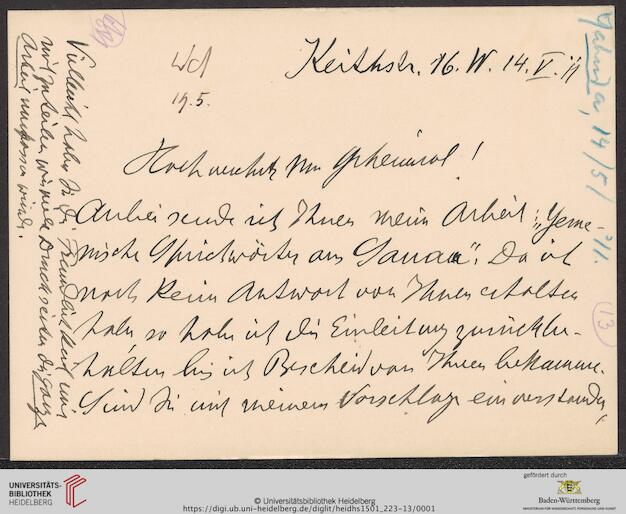 Keithstr. 16. W. 14. V. 11
19.5.
Hochverehrter Herr Geheimrat!
Anbei sende ich Ihnen meine Arbeit: „Jeme-
nische Sprichwörter aus Sanaa“. Da ich
noch keine Antwort von Ihnen erhalten
habe so habe ich die Einleitung zurückbe-
halten bis ich Bescheid von Ihnen bekomme.
Sind Sie mit meinem Vorschlage einverstanden,
Vielleicht haben Sie die Freundlichkeit mir
mitzuteilen wieviele Druckseiten die ganze
Arbeit umfassen würde.
14/5/ 11.
13
UNIVERSITÄTS-
BIBLIOTHEK
HEIDELBERG
© Universitätsbibliothek Heidelberg
https://digi.ub.uni-heidelberg.de/diglit/heidhs1501_223-13/0001
gefördert durch
Baden-Württemberg
MINISTERIUM FÜR WISSENSCHAFT, FORSCHUNG UND KUNST